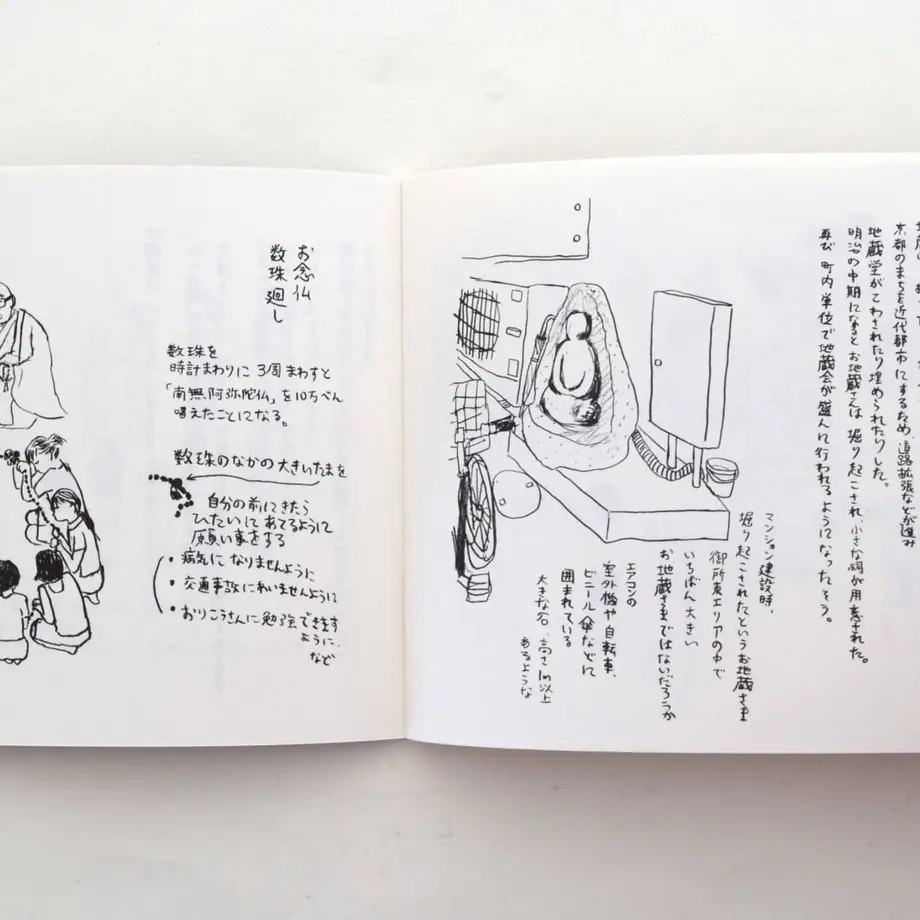 お念仏
数珠廻し
数珠を
時計まわりに 3周まわすと
「南無阿弥陀仏」を10万べん
唱えたことになる。
数珠のなかの大きいたまを
自分の前にきたら
ひたいに あてるように
願い事をする
・病気に なりませんように
・交通事故にあいませんように
・おりこうさんに勉強できます
ように、
など
京都のまちを近代都市にするため 道路拡張などが進み
地蔵堂がこわされたり埋められたりした。
明治の中期になるとお地蔵さんは 掘り起こされ、小さな祠が用意された。
再び 町内単位で地蔵会が 盛んに行われるようになったそう。
マンション建設時、
掘り起こされたというお地蔵さま
御所東エリアの中で
いちばん大きい
お地蔵さまではないだろうか
エアコンの
室外機や自転車、
ビニール傘などに
囲まれている
大きな石、高さ1m以上
あるような